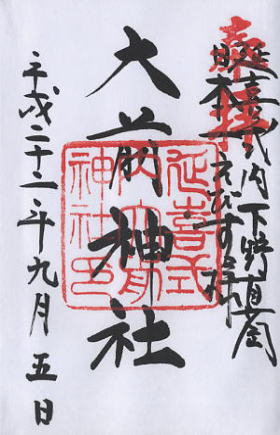 奉拝
延喜式内下野真岡
日本一えびす様
大前神社
延喜式
内大前
神社印
平成二十二年九月五日